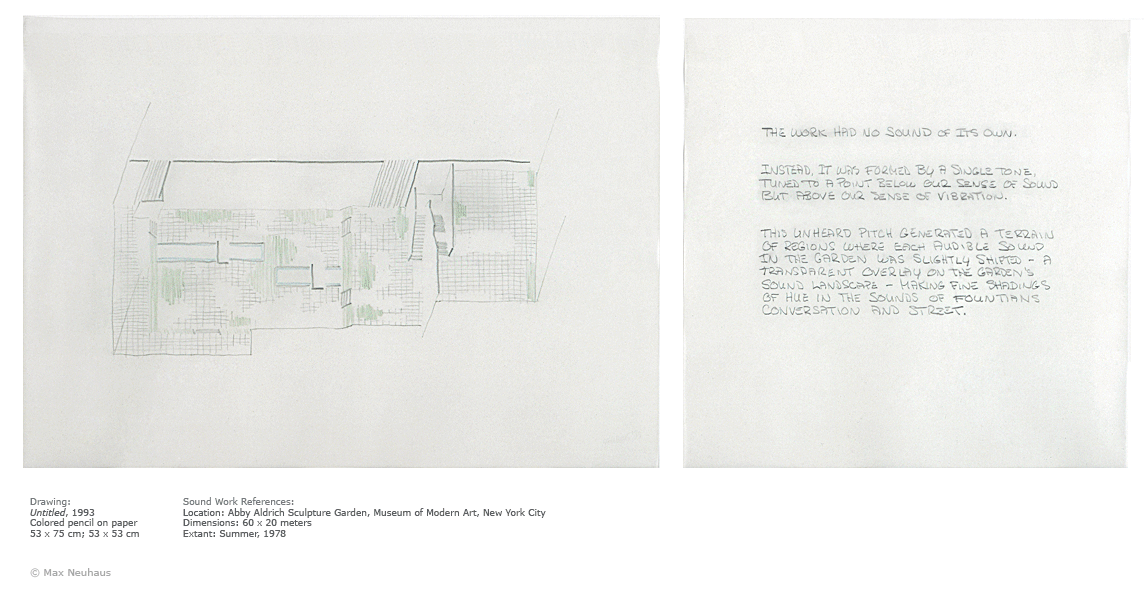 THE WORK HAD NO SOUND OF ITS OWN.
INSTEAD, IT WAS FORMED BY A SINGLE TONE,
TUNED TO A POINT BELOW OUR SENSE OF SOUND
BUT ABOVE OUR SENSE OF VIBRATION.
THIS UNHEARD PITCH GENERATED A TERRAIN
OF REGIONS WHERE EACH AUDIBLE SOUND
IN THE GARDEN WAS SLIGHTLY SHIFTED - A
TRANSPARENT OVERLAY ON THE GARDEN'S
SOUND LANDSCAPE - MAKING FINE SHADINGS
OF HUE IN THE SOUNDS OF FOUNTIANS
CONVERSATION AND STREET.
Drawing:
Untitled, 1993
Colored pencil on paper
53 x 75 cm; 53 x 53 cm
Sound Work References:
Location: Abby Aldrich Sculpture Garden, Museum of Modern Art, New York City
Dimensions: 60 x 20 meters
Extant: Summer, 1978
© Max Neuhaus